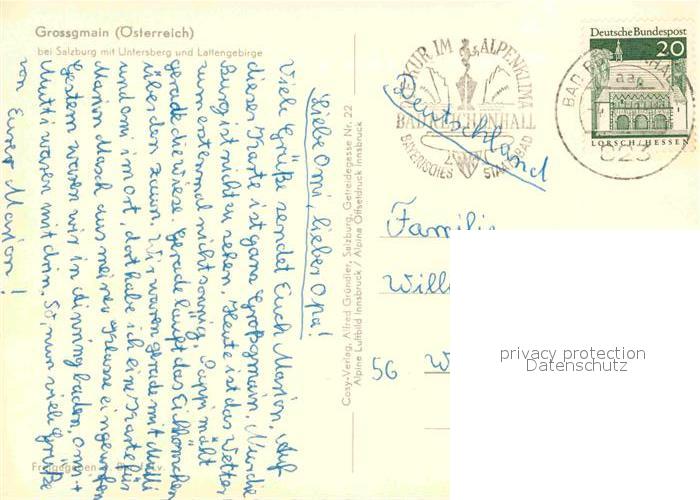 Grossgmain (Österreich)
bei Salzburg mit Untersberg und Lattengebirge
Liebe Omi, lieber Opa!
Viele Grüße sendet Euch Marion. Auf
dieser Karte ist ganz Großgmain. Nur die
Burg ist nicht zu sehen. Heute ist das Wetter
zum erstenmal nicht sonnig. Pappi mält
gerade die Wiese. Gerade läuft das Eichhörnchen
über den Zaun. Wir waren gerade mit Mutti
und omi im Ort, dort habe ich eine Karte für
Marion Masch aus meiner Klasse eingeworfen
Gestern waren wir in baden, omi +
Mutti waren mit drin. So, nun viele Grüße
von Eurer Marion!
Cosy-Verlag, Alfred Gründler, Salzburg, Getreidegasse Nr. 22
Alpine Luftbild Innsbruck / Alpine Offsetdruck Innsbruck
KUR IM ALPENKLIMA
BAD REICHENHALL
BAYERISCHES STAATSBAD
Deutschland
Deutsche Bundespost
20
LORSCH/HESSEN
BAD
823
Familie
Will
56 W
privacy protection
Datenschutz
Freigegeben